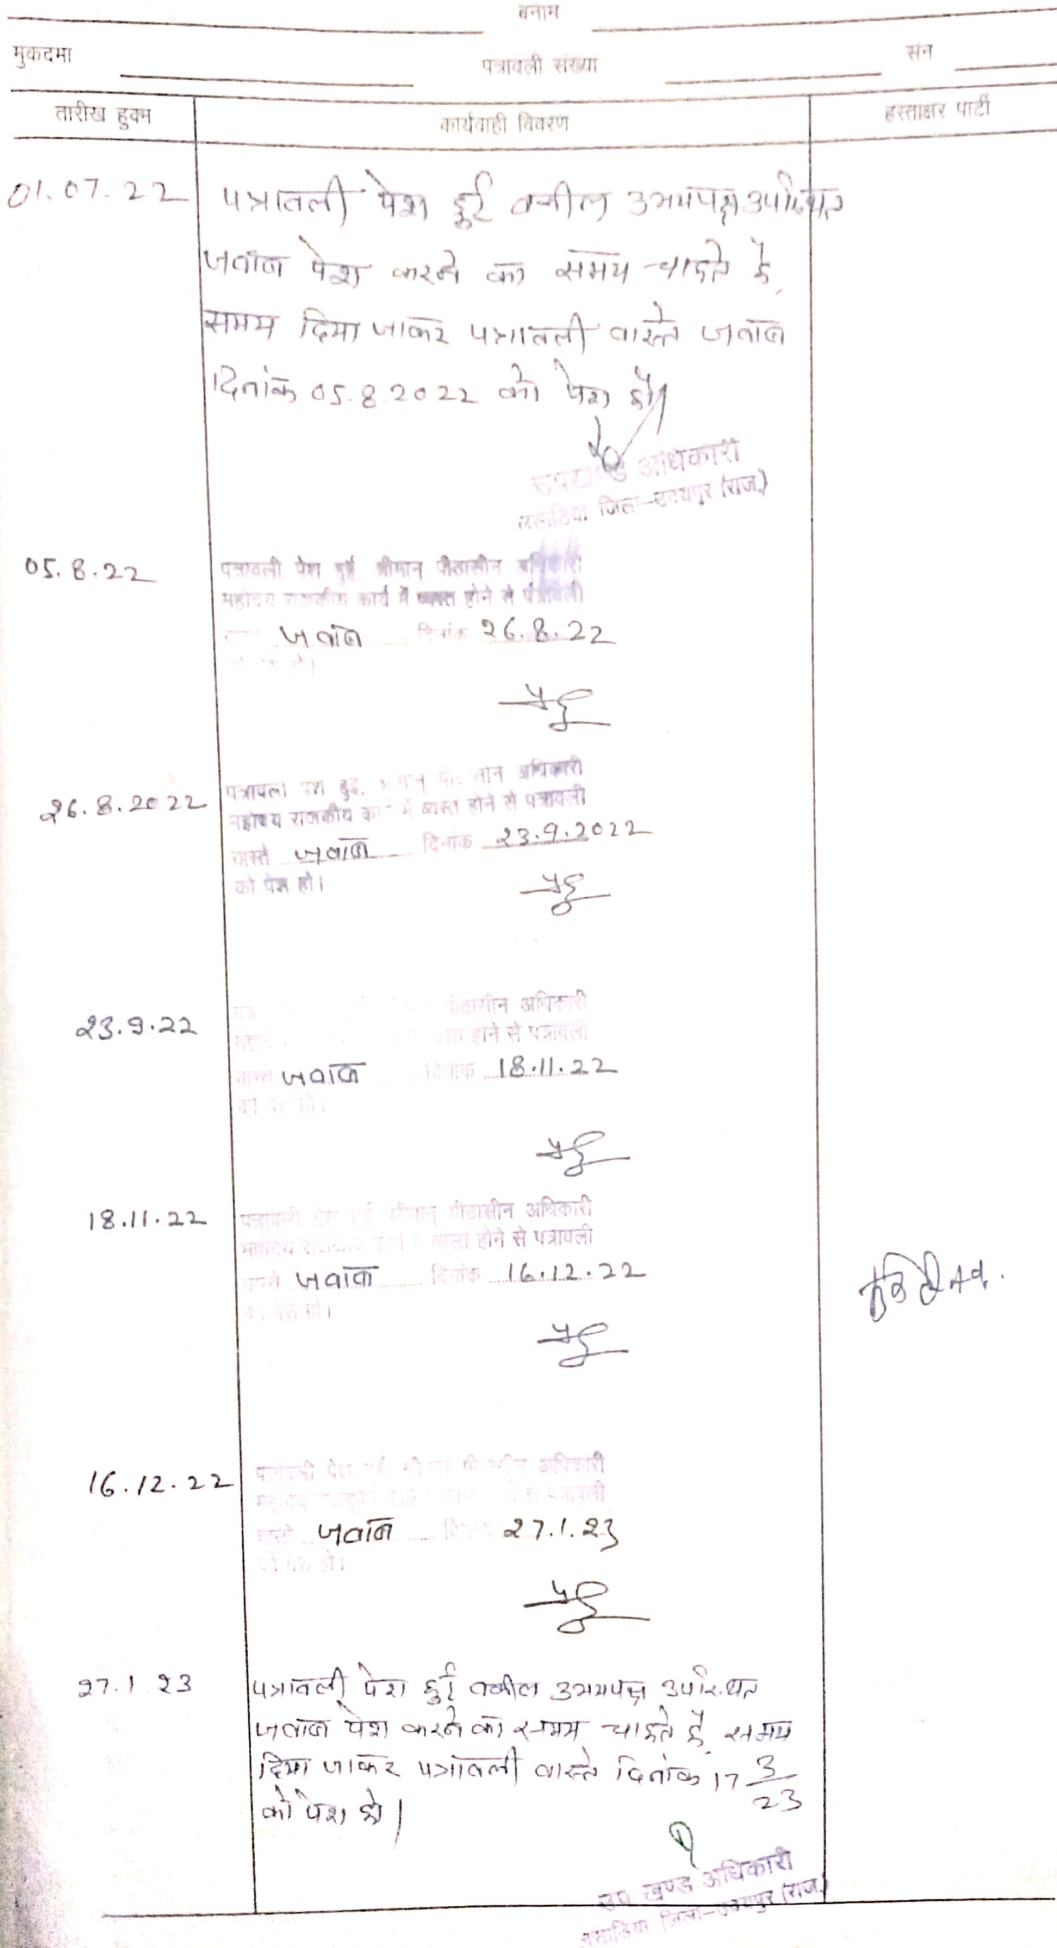 बनाम
मुकदमा पत्रावली संख्या सन
तारीख हुक्म कार्यवाही विवरण हस्ताक्षर पार्टी
01.07.22 पत्रावली पेश हुई वकील उभयपक्ष उपस्थित
जवाब पेश करने का समय चाहते है,
समय दिया जाकर पत्रावली वास्ते जवाब
दिनांक 05.8.2022 को पेश हो।
उपखण्ड अधिकारी
लसाडिया जिला-उदयपुर (राज.)
05.8.22 पत्रावली पेश हुई, श्रीमान पीठासीन अधिकारी
महोदय राजकीय कार्य में व्यस्त होने से पत्रावली
जवाब दिनांक 26.8.22
26.8.2022 पत्रावली पेश हुई, पीठासीन अधिकारी
महोदय राजकीय कार्य में व्यस्त होने से पत्रावली
वास्ते जवाब दिनांक 23.9.2022
को पेश हो।
23.9.22 पीठासीन अधिकारी
होने से पत्रावली
वास्ते जवाब दिनांक 18.11.22
18.11.22 पत्रावली पेश हुई श्रीमान् पीठासीन अधिकारी
महोदय होने से पत्रावली
जवाब दिनांक 16.12.22
16.12.22 पत्रावली पेश अधिकारी
पत्रावली
वास्ते जवाब दिनांक 27.1.23
27.1.23 पत्रावली पेश हुई वकील उभयपक्ष उपस्थित
जवाब पेश करने का समय चाहते है, समय
दिया जाकर पत्रावली वास्ते दिनांक 17 3/23
को पेश हो।
उप खण्ड अधिकारी
लसाडिया जिला-उदयपुर (राज.)